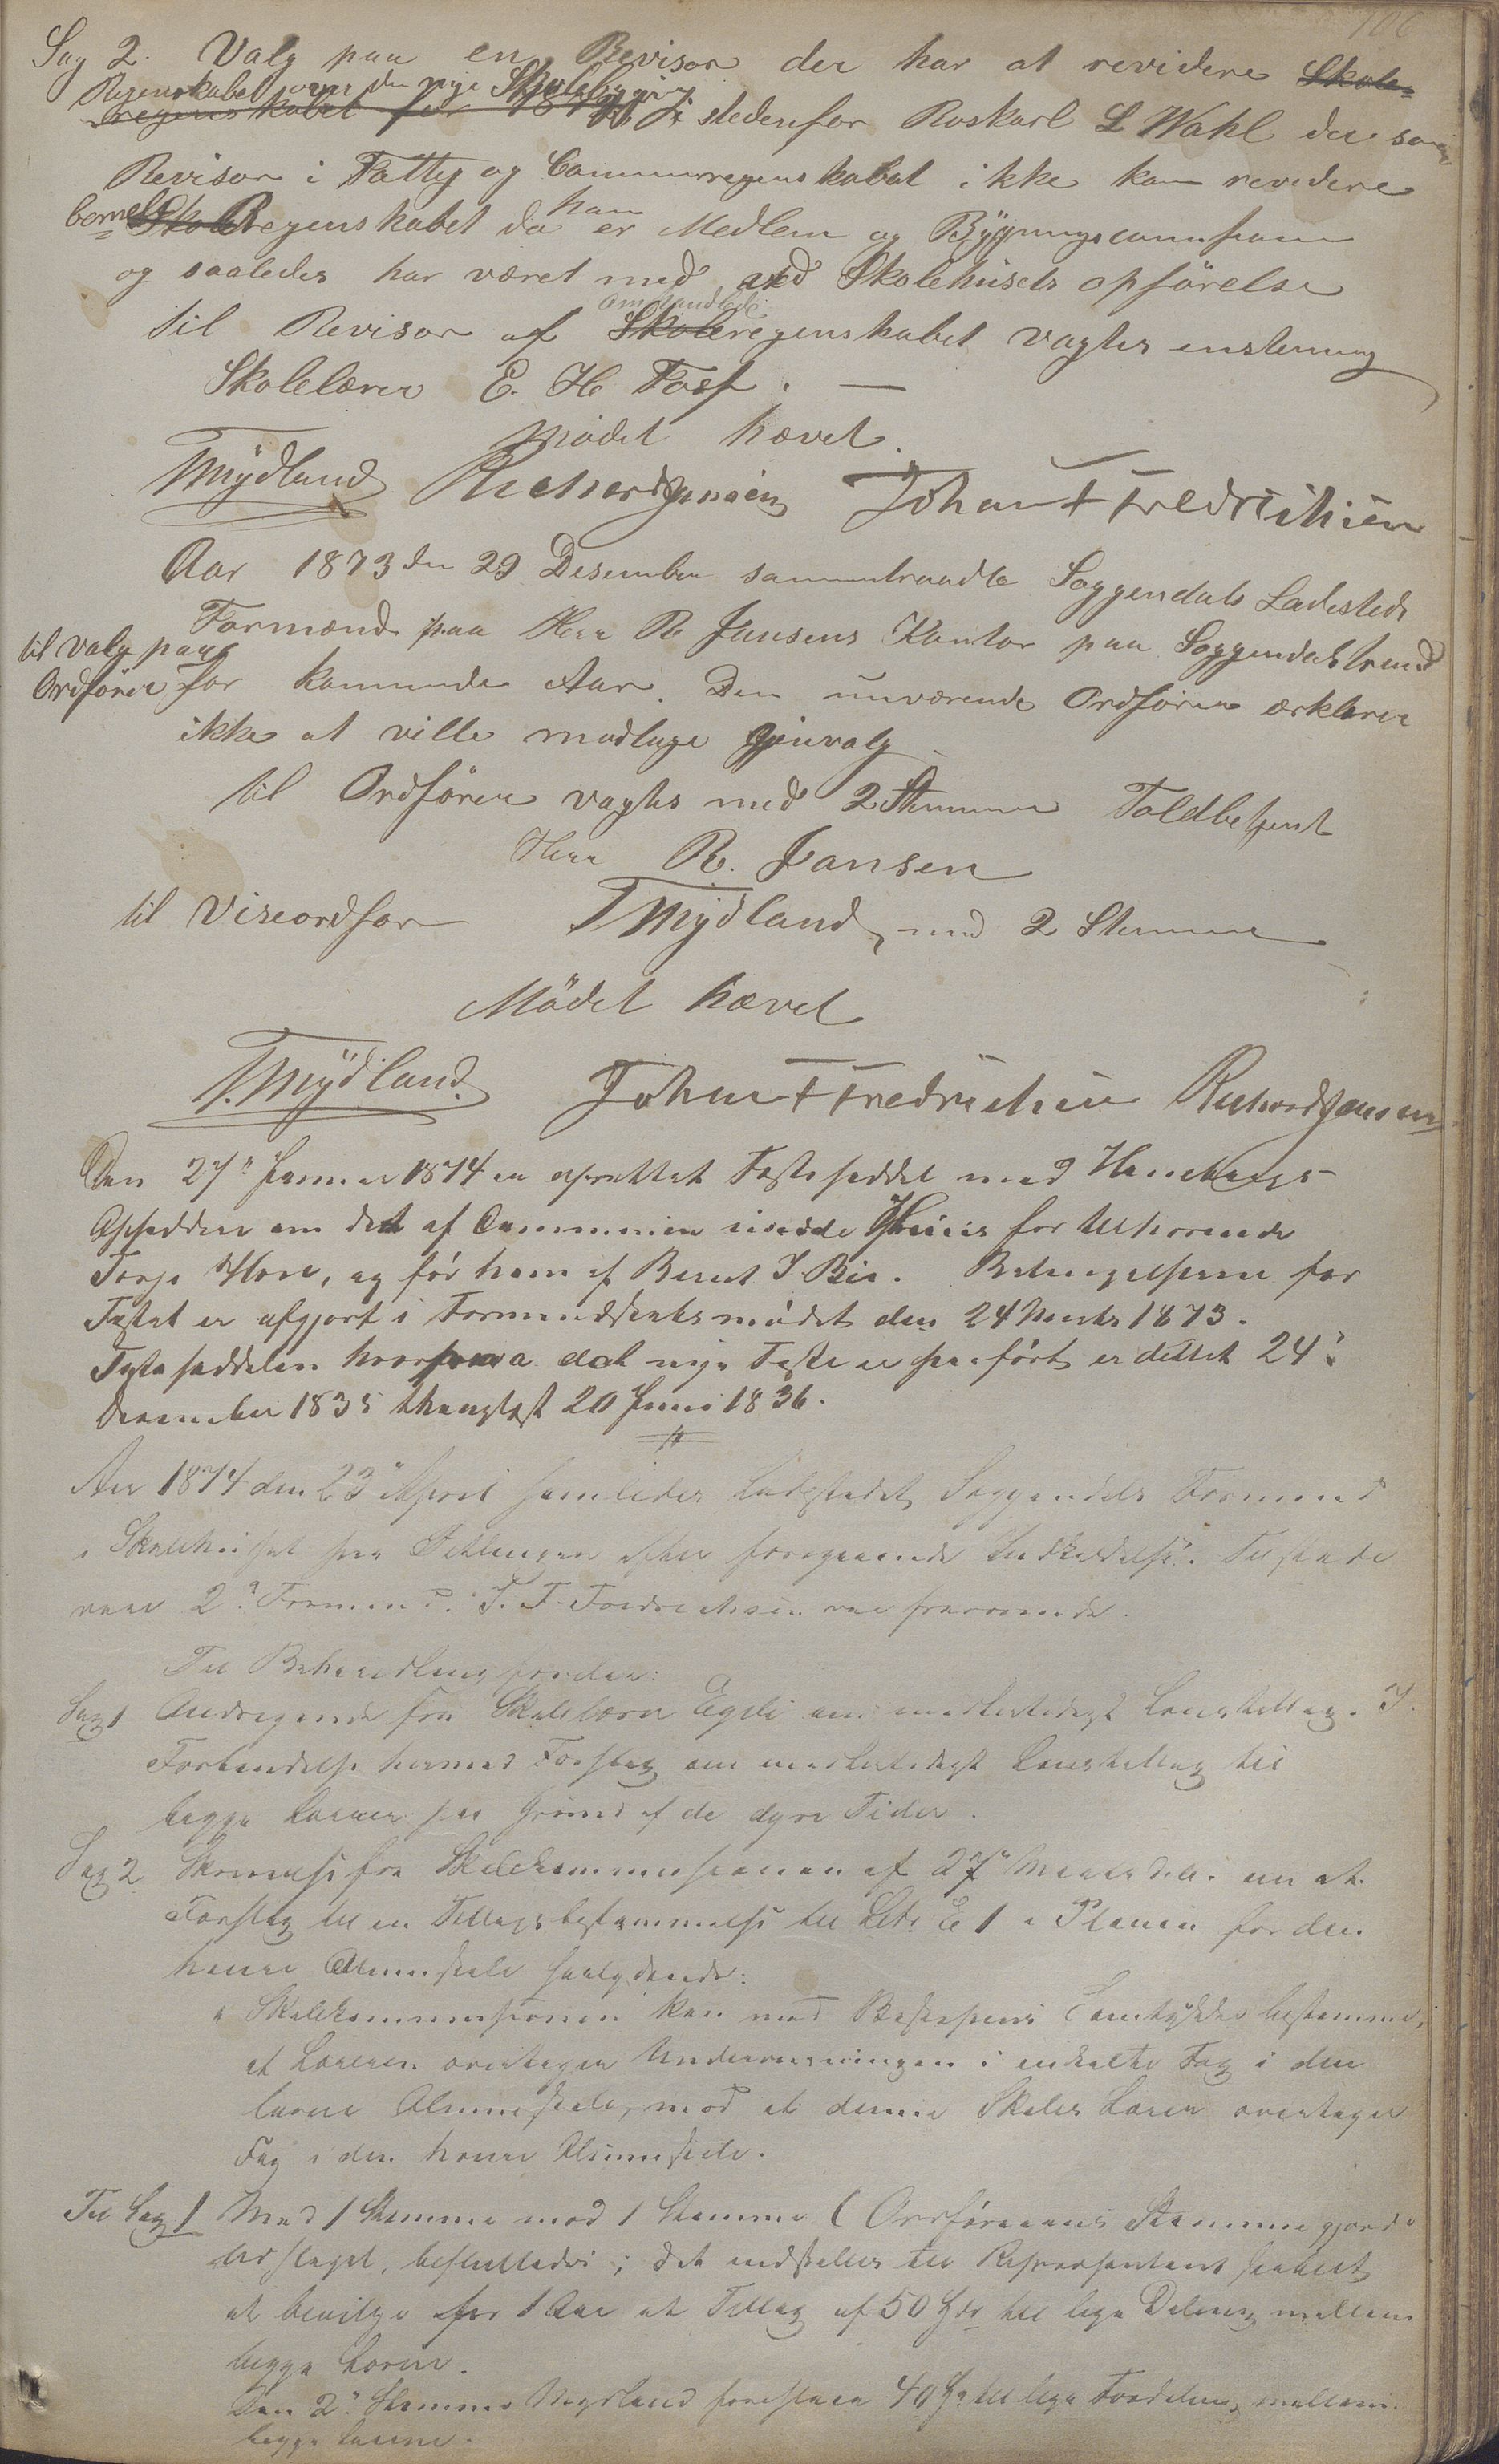 106
Sag 2. Valg paa en Revisor der har at revidere Skole-
Regenskabet over den nye Skolebygning
regenskabet for 1873 i stedenfor Roskarl L Wahl der som
Revisor i Fattig og Communeregenskabet ikke kan revidere
bemelte Skole Regenskabet da han er Medlem og Bygningscommision
og saaledes har været med ved Skolehusets opförelse
til Revisor af omhandlede Skoleregenskabet valgtes enstemig
Skolelærer E. H. Foss. —
Mödet hævet.
TMydland Richard Jansen Johan F Fredrichsen
Aar 1873 den 29 Desember sammentraadte Soggendals Ladesteds
Formænd paa Herr R Jansens Kontor paa Soggendalstrand
til valg paa
Ordförer for kommende Aar. Den nuværende Ordförer erklærer
ikke at ville modtage Gjenvalg
til Ordförer valgtes med 2 Stemmer Toldbetjent
Herr R. Jansen
til Viseordfor TMydland, med 2 Stemmer
Mödet hævet
T. Mydland. Johan F Fredrichsen Richard Jansen
Den 27de Januar 1874 er oprettet Festeseddel med
om det af Communen eiede Huus for tilhorende
Tonje Hove, og för ham af Berent I Bie. Betingelserne for
Festet er afgjort i Formandskabsmödet den 24 Marts 1873.
Festeseddelen hvorpaa det nye Feste er paafört er dateret 24de
December 1835 thinglæst 20 Juni 1836.
Aar 1874 den 23de April samledes Ladestedet Soggendals Formænd
i Skolehuset paa efter foregaaende Indkaldelse. Tilstede
vare 2de Formænd. J. F. Fredrichsen var fraværende.
Til Behandling foretoges:
Sag 1 Andragende fra Skolelærer Egeli om midlertidigt Löenstillæg. I
Forbindelse hermed Forslag om midlertidigt Lönstillæg til
begge Lærere paa Grund af de dyre Tider.
Sag 2 Skrivelse fra Skolekommissionen af 27de Marts d.A. om at
Forslag til en Tillægsbestemmelse til Litr. E 1 i Planen for den
höiere Almueskole saalydende:
"Skolekommissionen kan med Biskopens Samtykke bestemme,
at Læreren overtager Underviisningen i enkelte Fag i den
lavere Almueskole, mod at denne Skoles Lærer overtager
Fag i den höiere Almueskole.
Til Sag 1 Med 1 Stemme mod 1 Stemme (Ordförerens Stemme gjorde
Udslaget, besluttedes: Det indstilles til Repræsentantskabet
at bevilge for 1 Aar et Tillæg af 50 Spd til lige Deling mellem
begge Lærere.
Den 2den Stemme Mydland foreslaar 40 Spd til lige Fordeling mellem
begge Lærere.